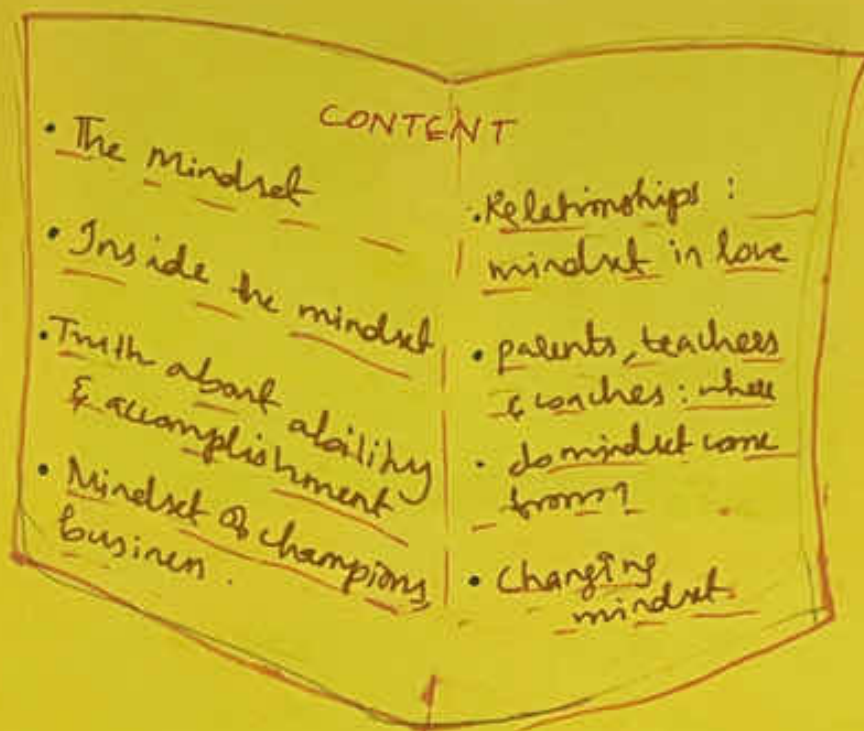 CONTENT
• The Mindset
• Inside the mindset
• Truth about ability
& accomplishment
• Mindset of champions,
business.
• Relationships :
mindset in love
• parents, teachers
& coaches : where
• do mindset come
from?
• Changing
mindset